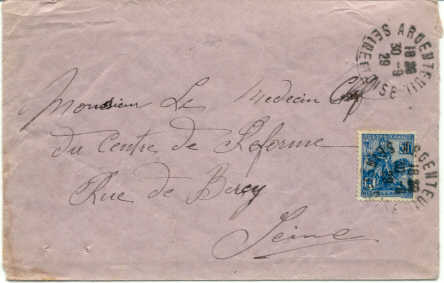 ARGENTEUIL
SEINE-ET-OISE
18 30
30 -9
29
Monsieur Le Medecin Chef
du Centre de Reforme
Rue de Bercy
Seine